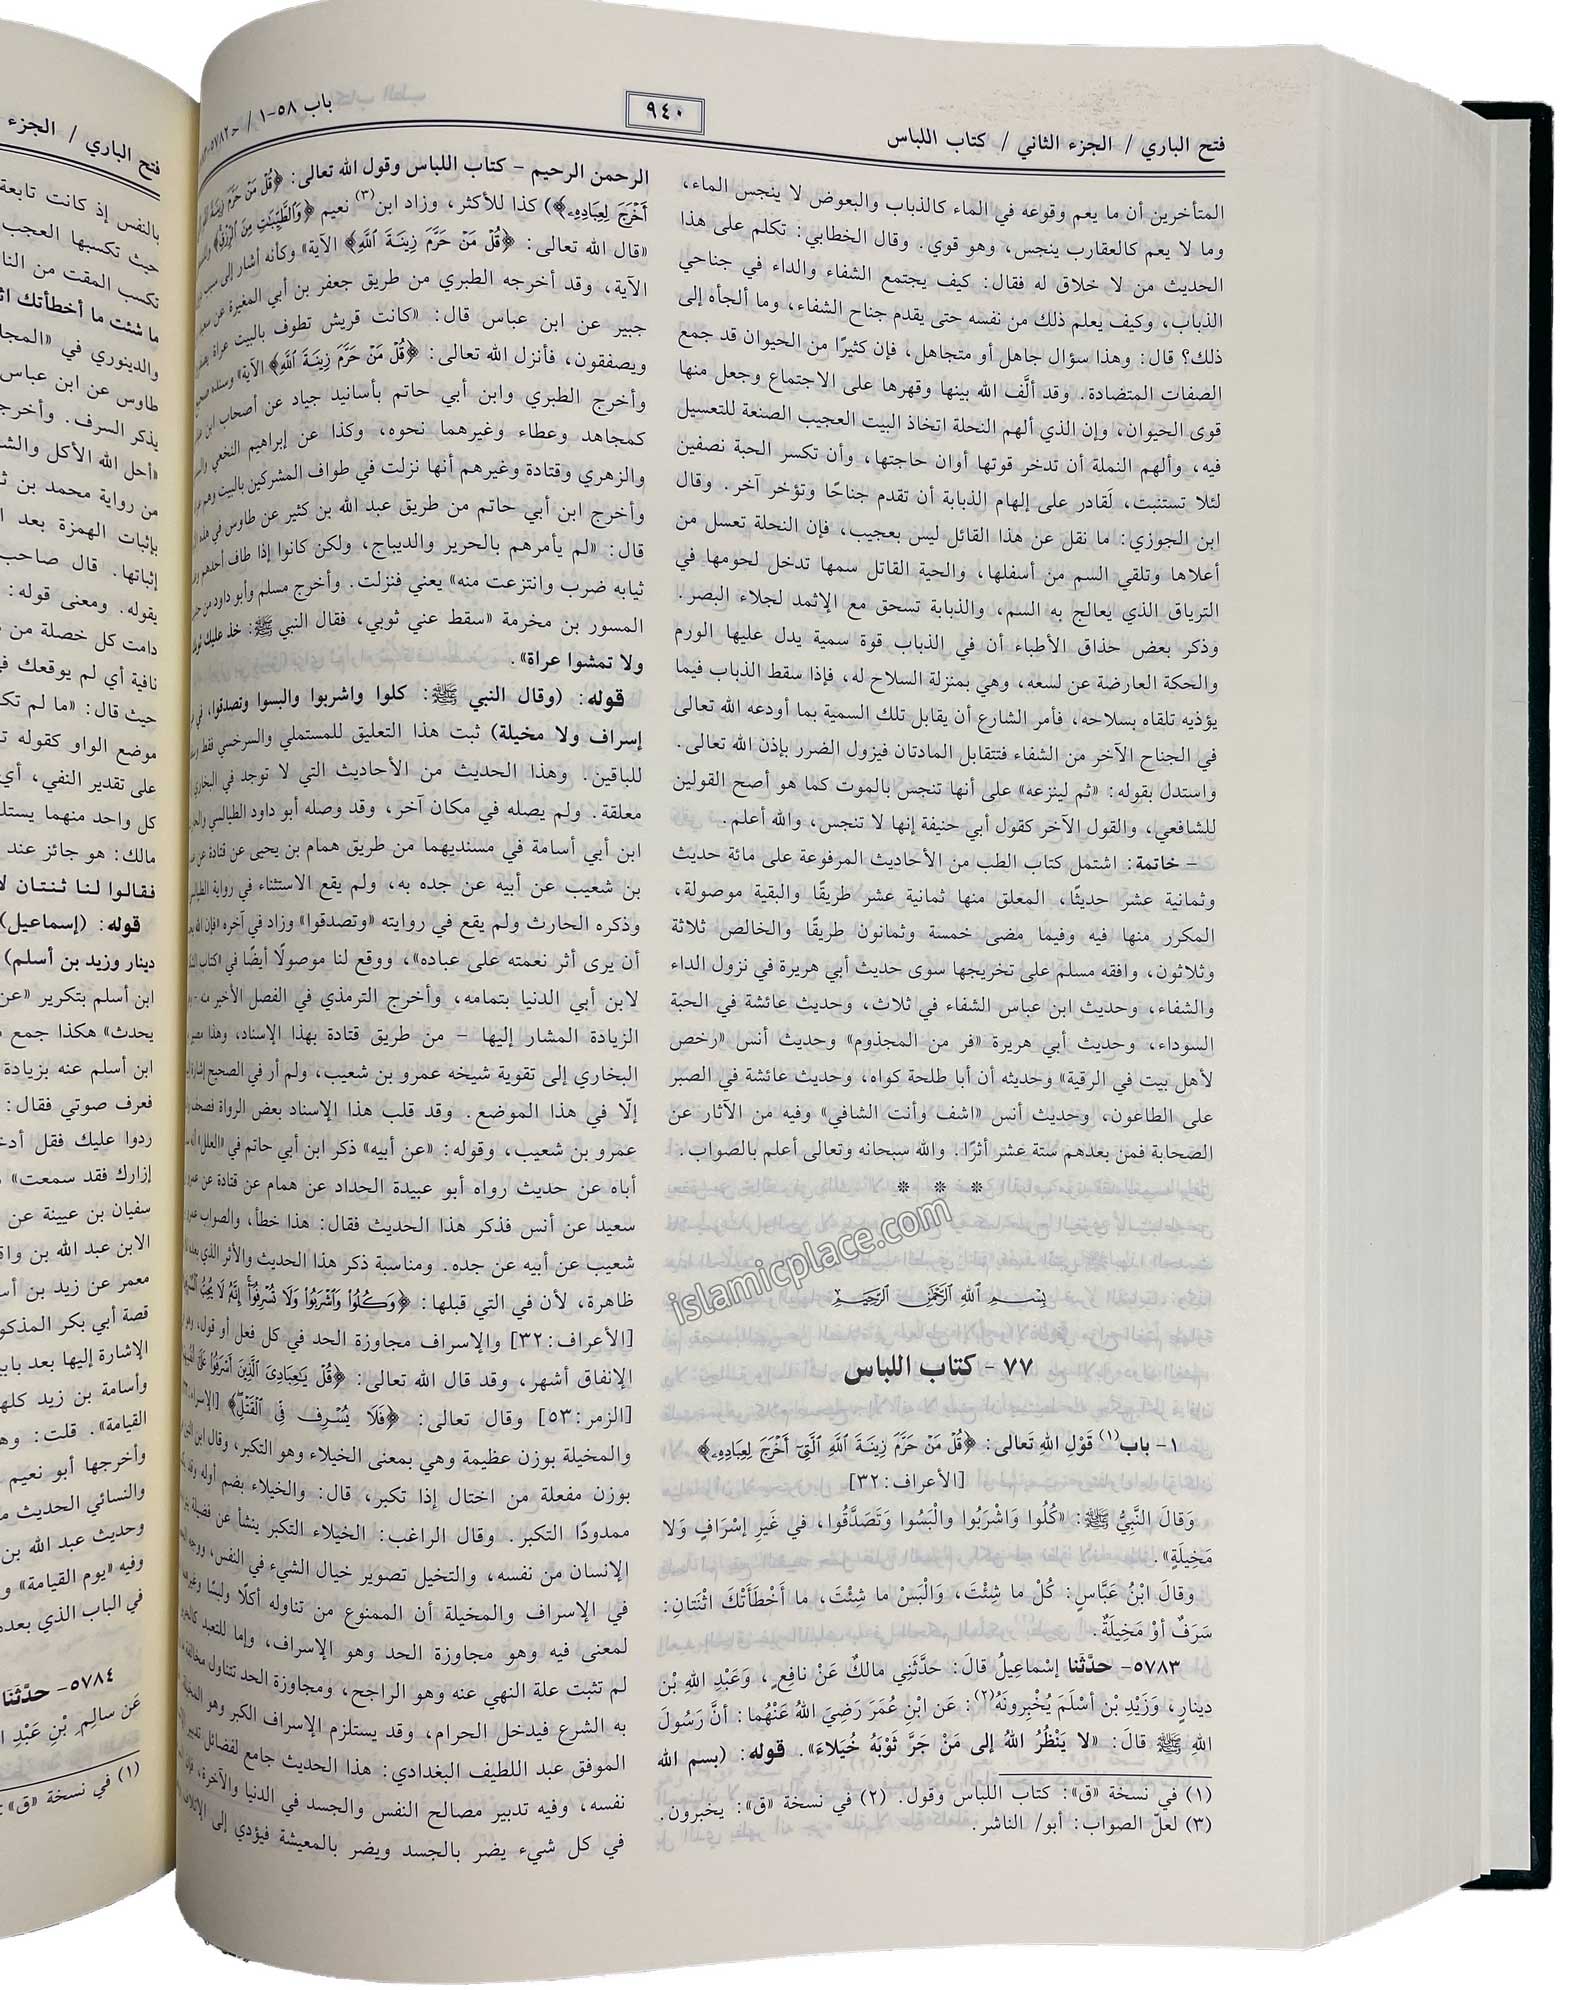 فتح الباري / الجزء الثاني / كتاب اللباس
٩٤٠
باب ٥٨-١ / ح٥٧٨٢-
المتأخرين أن ما يعم وقوعه في الماء كالذباب والبعوض لا ينجس الماء،
وما لا يعم كالعقارب ينجس، وهو قوي. وقال الخطابي: تكلم على هذا
الحديث من لا خلاق له فقال: كيف يجتمع الشفاء والداء في جناحي
الذباب، وكيف يعلم ذلك من نفسه حتى يقدم جناح الشفاء، وما ألجأه إلى
ذلك؟ قال: وهذا سؤال جاهل أو متجاهل، فإن كثيرًا من الحيوان قد جمع
الصفات المتضادة. وقد ألَّف الله بينها وقهرها على الاجتماع وجعل منها
قوى الحيوان، وإن الذي ألهم النحلة اتخاذ البيت العجيب الصنعة للتعسيل
فيه، وألهم النملة أن تدخر قوتها أوان حاجتها، وأن تكسر الحبة نصفين
لئلا تستنبت، لَقادر على إلهام الذبابة أن تقدم جناحًا وتؤخر آخر. وقال
ابن الجوزي: ما نقل عن هذا القائل ليس بعجيب، فإن النحلة تعسل من
أعلاها وتلقي السم من أسفلها، والحية القاتل سمها تدخل لحومها في
الترياق الذي يعالج به السم، والذبابة تسحق مع الإثمد لجلاء البصر.
وذكر بعض حذاق الأطباء أن في الذباب قوة سمية يدل عليها الورم
والحكة العارضة عن لسعه، وهي بمنزلة السلاح له، فإذا سقط الذباب فيما
يؤذيه تلقاه بسلاحه، فأمر الشارع أن يقابل تلك السمية بما أودعه الله تعالى
في الجناح الآخر من الشفاء فتتقابل المادتان فيزول الضرر بإذن الله تعالى.
واستدل بقوله: «ثم لينزعه» على أنها تنجس بالموت كما هو أصح القولين
للشافعي، والقول الآخر كقول أبي حنيفة إنها لا تنجس، والله أعلم.
- خاتمة: اشتمل كتاب الطب من الأحاديث المرفوعة على مائة حديث
وثمانية عشر حديثًا، المعلق منها ثمانية عشر طريقًا والبقية موصولة،
المكرر منها فيه وفيما مضى خمسة وثمانون طريقًا والخالص ثلاثة
وثلاثون، وافقه مسلم على تخريجها سوى حديث أبي هريرة في نزول الداء
والشفاء، وحديث ابن عباس الشفاء في ثلاث، وحديث عائشة في الحبة
السوداء، وحديث أبي هريرة «فر من المجذوم» وحديث أنس «رخص
لأهل بيت في الرقية» وحديثه أن أبا طلحة كواه، وحديث عائشة في الصبر
على الطاعون، وحديث أنس «اشف وأنت الشافي» وفيه من الآثار عن
الصحابة فمن بعدهم ستة عشر أثرًا. والله سبحانه وتعالى أعلم بالصواب.
* * *
islamicplace.com
بسم الله الرحمن الرحيم
٧٧ - كتاب اللباس
١- باب(١) قَوْلِ اللهِ تَعالى: ﴿قُلْ مَنْ حَرَّمَ زِينَةَ اللَّهِ الَّتِي أَخْرَجَ لِعِبَادِهِ﴾
[الأعراف:٣٢]
وَقالَ النَّبِيُّ ﷺ: «كُلُوا وَاشْرَبُوا وَالْبَسُوا وَتَصَدَّقُوا، في غَيرِ إسْرَافٍ وَلا
مَخِيلَةٍ».
وَقالَ ابْنُ عَبَّاسٍ: كُلْ ما شِئْتَ، وَالْبَسْ ما شِئْتَ، ما أَخْطَأَتْكَ اثْنَتَانِ:
سَرَفٌ أوْ مَخِيلَةٌ.
٥٧٨٣- حدَّثَنا إسْماعِيلُ قالَ: حَدَّثَنِي مالكٌ عَنْ نافِعٍ، وَعَبْدِ اللهِ بْنِ
دِينارٍ، وَزَيْدِ بْنِ أسْلَمَ يُخْبِرونَهُ(٢): عَن ابْنِ عُمَرَ رَضِيَ اللهُ عَنْهُما: أنَّ رَسُولَ
اللهِ ﷺ قالَ: «لا يَنْظُرُ اللهُ إلى مَنْ جَرَّ ثَوْبَهُ خُيَلاءَ». قوله: (بسم الله
(١) في نسخة «ق»: كتاب اللباس وقول. (٢) في نسخة «ق»: يخبرون.
(٣) لعلّ الصواب: أبو/ الناشر.
الرحمن الرحيم - كتاب اللباس وقول الله تعالى: ﴿قُلْ مَنْ حَرَّمَ زِينَةَ
أَخْرَجَ لِعِبَادِهِ﴾) كذا للأكثر، وزاد ابن(٣) نعيم ﴿وَالطَّيِّبَاتِ مِنَ الرِّزْقِ﴾
«قال الله تعالى: ﴿قُلْ مَنْ حَرَّمَ زِينَةَ اللَّهِ﴾ الآية» وكأنه أشار إلى سبب
الآية، وقد أخرجه الطبري من طريق جعفر بن أبي المغيرة عن سعيد
جبير عن ابن عباس قال: «كانت قريش تطوف بالبيت عراة
ويصفقون، فأنزل الله تعالى: ﴿قُلْ مَنْ حَرَّمَ زِينَةَ اللَّهِ﴾ الآية» وسنده صحيح
وأخرج الطبري وابن أبي حاتم بأسانيد جياد عن أصحاب ابن
كمجاهد وعطاء وغيرهما نحوه، وكذا عن إبراهيم النخعي
والزهري وقتادة وغيرهم أنها نزلت في طواف المشركين بالبيت وهم
وأخرج ابن أبي حاتم من طريق عبد الله بن كثير عن طاوس في هذه
قال: «لم يأمرهم بالحرير والديباج، ولكن كانوا إذا طاف أحدهم
ثيابه ضرب وانتزعت منه» يعني فنزلت. وأخرج مسلم وأبو داود من
المسور بن مخرمة «سقط عني ثوبي، فقال النبي ﷺ: خذ عليك
ولا تمشوا عراة».
قوله: (وقال النبي ﷺ: كلوا واشربوا والبسوا وتصدقوا، في
إسراف ولا مخيلة) ثبت هذا التعليق للمستملي والسرخسي فقط
للباقين. وهذا الحديث من الأحاديث التي لا توجد في البخاري
معلقة. ولم يصله في مكان آخر، وقد وصله أبو داود الطيالسي
ابن أبي أسامة في مسنديهما من طريق همام بن يحيى عن قتادة عن
بن شعيب عن أبيه عن جده به، ولم يقع الاستثناء في رواية الطيالسي
وذكره الحارث ولم يقع في روايته «وتصدقوا» وزاد في آخره «فإن الله
أن يرى أثر نعمته على عباده»، ووقع لنا موصولًا أيضًا في «كتاب
لابن أبي الدنيا بتمامه، وأخرج الترمذي في الفصل الأخير منه -
الزيادة المشار إليها - من طريق قتادة بهذا الإسناد، وهذا
البخاري إلى تقوية شيخه عمرو بن شعيب، ولم أر في الصحيح إشارة
إلّا في هذا الموضع. وقد قلب هذا الإسناد بعض الرواة فصحف
عمرو بن شعيب، وقوله: «عن أبيه» ذكر ابن أبي حاتم في «العلل»
أباه عن حديث رواه أبو عبيدة الحداد عن همام عن قتادة عن
سعيد عن أنس فذكر هذا الحديث فقال: هذا خطأ، والصواب
شعيب عن أبيه عن جده. ومناسبة ذكر هذا الحديث والأثر الذي بعده
ظاهرة، لأن في التي قبلها: ﴿وَكُلُوا وَاشْرَبُوا وَلَا تُسْرِفُوا إِنَّهُ لَا يُحِبُّ
[الأعراف:٣٢] والإسراف مجاوزة الحد في كل فعل أو قول، وهو
الإنفاق أشهر، وقد قال الله تعالى: ﴿قُلْ يَاعِبَادِيَ الَّذِينَ أَسْرَفُوا عَلَى
[الزمر:٥٣] وقال تعالى: ﴿فَلَا يُسْرِف فِّي الْقَتْلِ﴾ [الإسراء:
والمخيلة بوزن عظيمة وهي بمعنى الخيلاء وهو التكبر، وقال ابن التين
بوزن مفعلة من اختال إذا تكبر، قال: والخيلاء بضم أوله وقد
ممدودًا التكبر. وقال الراغب: الخيلاء التكبر ينشأ عن فضيلة
الإنسان من نفسه، والتخيل تصوير خيال الشيء في النفس، ووجه
في الإسراف والمخيلة أن الممنوع من تناوله أكلًا ولبسًا وغيرهما
لمعنى فيه وهو مجاوزة الحد وهو الإسراف، وإما للتعبد
لم تثبت علة النهي عنه وهو الراجح، ومجاوزة الحد تتناول مخالفة
به الشرع فيدخل الحرام، وقد يستلزم الإسراف الكبر وهو المخيلة
الموفق عبد اللطيف البغدادي: هذا الحديث جامع لفضائل تدبير
نفسه، وفيه تدبير مصالح النفس والجسد في الدنيا والآخرة،
في كل شيء يضر بالجسد ويضر بالمعيشة فيؤدي إلى الإتلاف
فتح الباري / الجزء
بالنفس إذ كانت تابعة
حيث تكسبها العجب
تكسب المقت من
ما شئت ما أخطأتك
والدينوري في
طاوس عن ابن عباس
يذكر السرف. وأخرج
«أحل الله الأكل
من رواية محمد بن
بإثبات الهمزة بعد
إثباتها. قال صاحب
بقوله. ومعنى قوله:
دامت كل خصلة من
نافية أي لم يوقعك
حيث قال: «ما لم
موضع الواو كقوله
على تقدير النفي، أي
كل واحد منهما
مالك: هو جائز عند
فقالوا لنا ثنتان لا
قوله: (إسماعيل)
دينار وزيد بن أسلم)
ابن أسلم بتكرير «عن
يحدث» هكذا جمع
ابن أسلم عنه بزيادة
فعرف صوتي فقال:
ردوا عليك فقل
إزارك فقد سمعت»
سفيان بن عيينة عن
الابن عبد الله بن
معمر عن زيد بن
قصة أبي بكر
الإشارة إليها بعد
وأسامة بن زيد
القيامة». قلت:
وأخرجها أبو نعيم
والنسائي الحديث
وحديث عبد الله بن
وفيه «يوم القيامة»
في الباب الذي بعده
٥٧٨٤- حدَّثَنَا
عَن سالِمِ بْنِ عَبْدِ
(١) في نسخة «ق»: